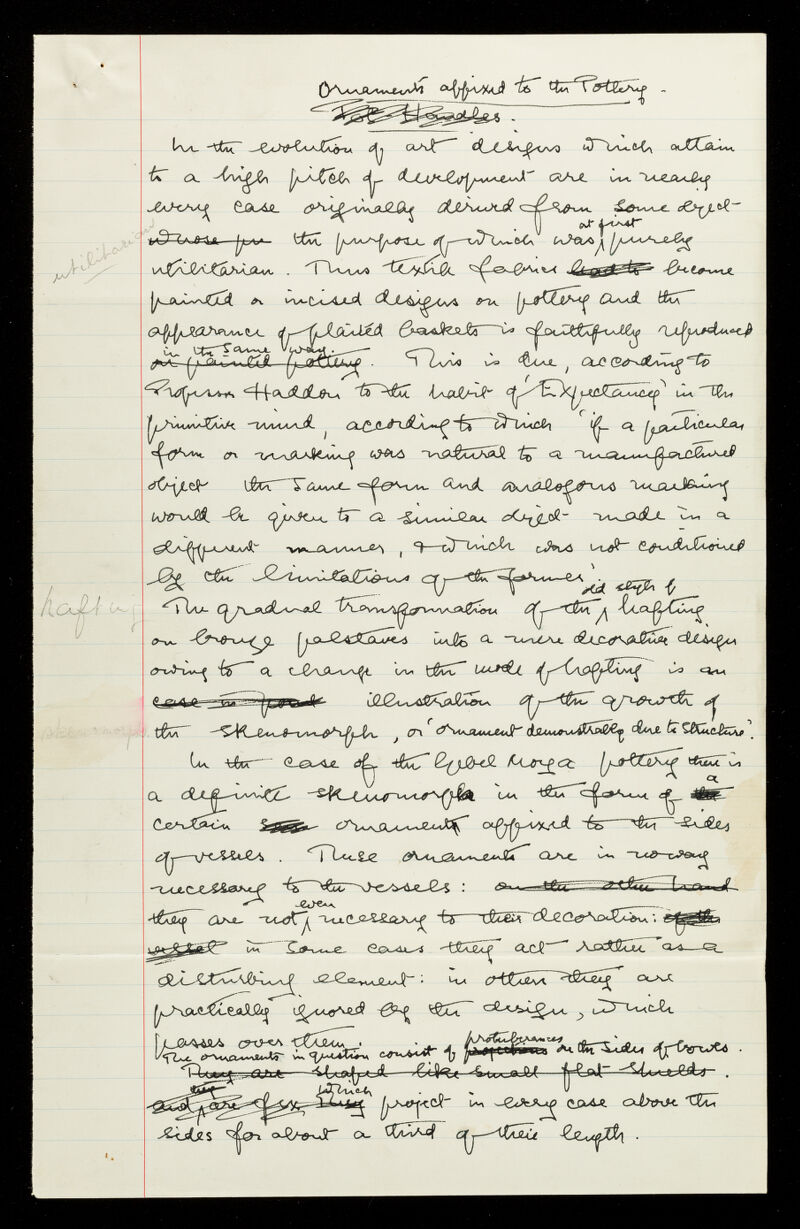 Ornaments affixed to the Pottery.
Pot Handles.
In the evolution of art designs which attain
to a high pitch of development are in nearly
every case originally derived from some object
utilitarian
at first
whose pu the purpose of which was purely
utilitarian. Thus textile fabrics had to become
painted or incised designs on pottery and the
appearance of plaited baskets is faithfully reproduced
in the same way.
on painted pottery. This is due, according to
Professor Haddon to the habit of 'Expectancy' in the
primitive mind, according to which 'if a particular
form or marking was natural to a manufactured
object the same form and analogous marking
would be given to a similar object made in a
different manner, & which was not conditioned
by the limitations of the former.'
old style of
hafting
The gradual transformation of the hafting
on bronze palstaves into a mere decorative design
owing to a change in the mode of hafting is an
case in point illustration of the growth of
skenomorph
the skenomorph, or 'ornament demonstrably due to structure'.
In the case of the Gebel Moya pottery there is
a definite skenomorph in the form of a
certain ornaments affixed to the sides
of vessels. These ornaments are in no way
necessary to the vessels: on the other hand
even
they are not necessary to their decoration: of the
vessel in some cases they act rather as a
disturbing element: in others they are
practically ignored by the design, which
passes over them.
protuberances
The ornaments in question consist of projections on the sides of bowls.
They are shaped like small flat shields.
they which
and are they project in every case above the
sides for about a third of their length.